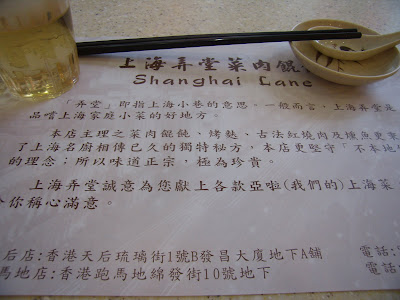 上海弄堂菜肉餛
Shanghai Lane
「弄堂」即指上海小巷的意思。一般而言，上海弄堂是
品嚐上海家庭小菜的好地方。
本店主理之菜肉餛飩、烤麩、古法紅燒肉及燻魚更
了上海名廚相傳已久的獨特秘方，本店更堅守「不本地
的理念；所以味道正宗，極為珍貴。
上海弄堂誠意為您獻上各款亞啦(我們的)上海菜
你稱心滿意。
后店：香港天后琉璃街1號B發昌大廈地下A舖 電話：
馬地店：香港跑馬地綿發街10號地下 電話